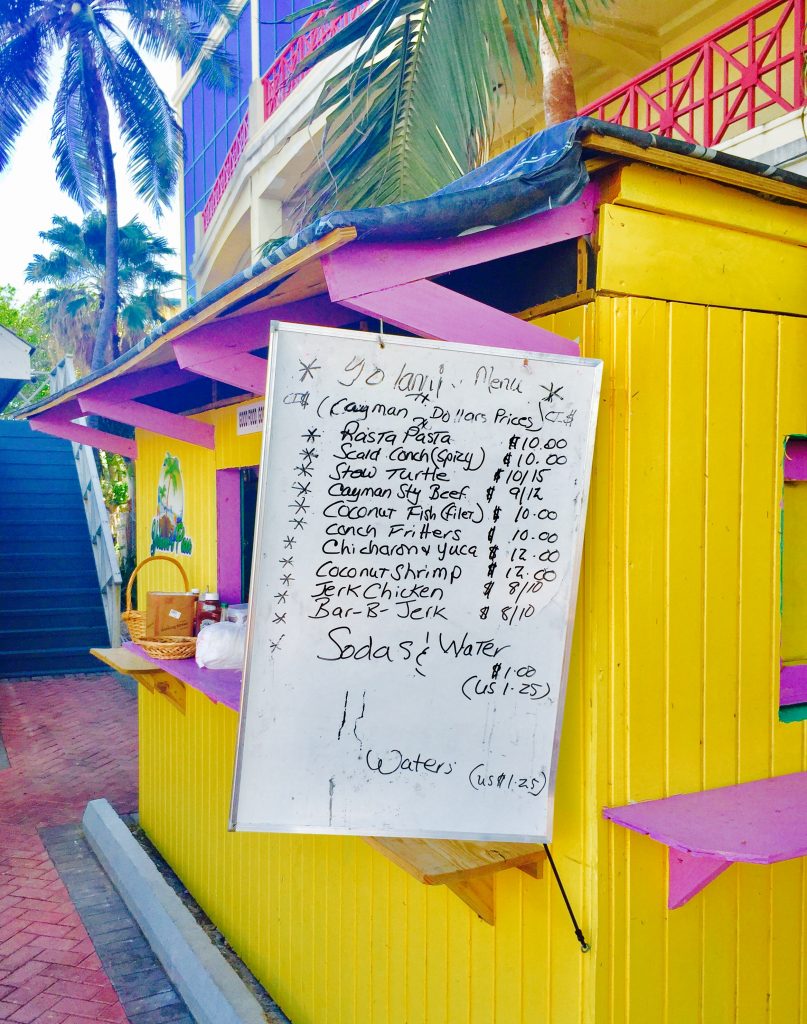 * Yolanji. Menu *
CI$ (Cayman Dollars Prices) CI$
* Rasta Pasta $10.00
* Scald Conch (spizy) $10.00
* Stew Turtle $10/15
* Cayman Sty Beef $9/12
* Coconut Fish (filet) $10.00
* Conch Fritters $10.00
* Chicharon & Yuca $12.00
* Coconut Shrimp $12.00
* Jerk Chicken $8/10
* Bar-B- Jerk $8/10
* Sodas & Water
$1.00
(US 1.25)
Waters (US$1.25)